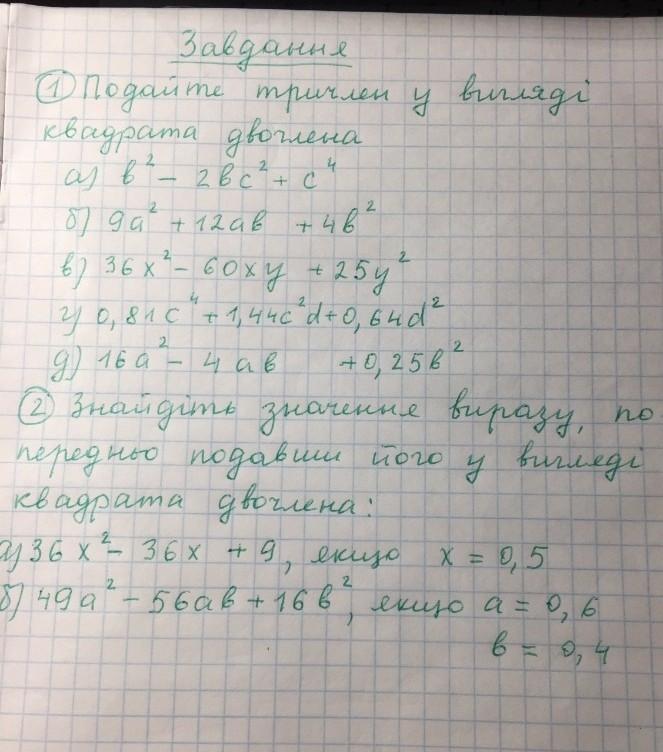 Завдання
① Подайте тричлен у вигляді
квадрата двочлена
а) в² - 2вс² + с⁴
б) 9а² + 12ав + 4в²
в) 36х² - 60ху + 25у²
г) 0,81с⁴ + 1,44с²d + 0,64d²
д) 16а² - 4ав + 0,25в²
② Знайдіть значення виразу, по
передньо подавши його у вигляді
квадрата двочлена:
а) 36х² - 36х + 9, якщо х = 0,5
б) 49а² - 56ав + 16в², якщо а = 0,6
в = 0,4